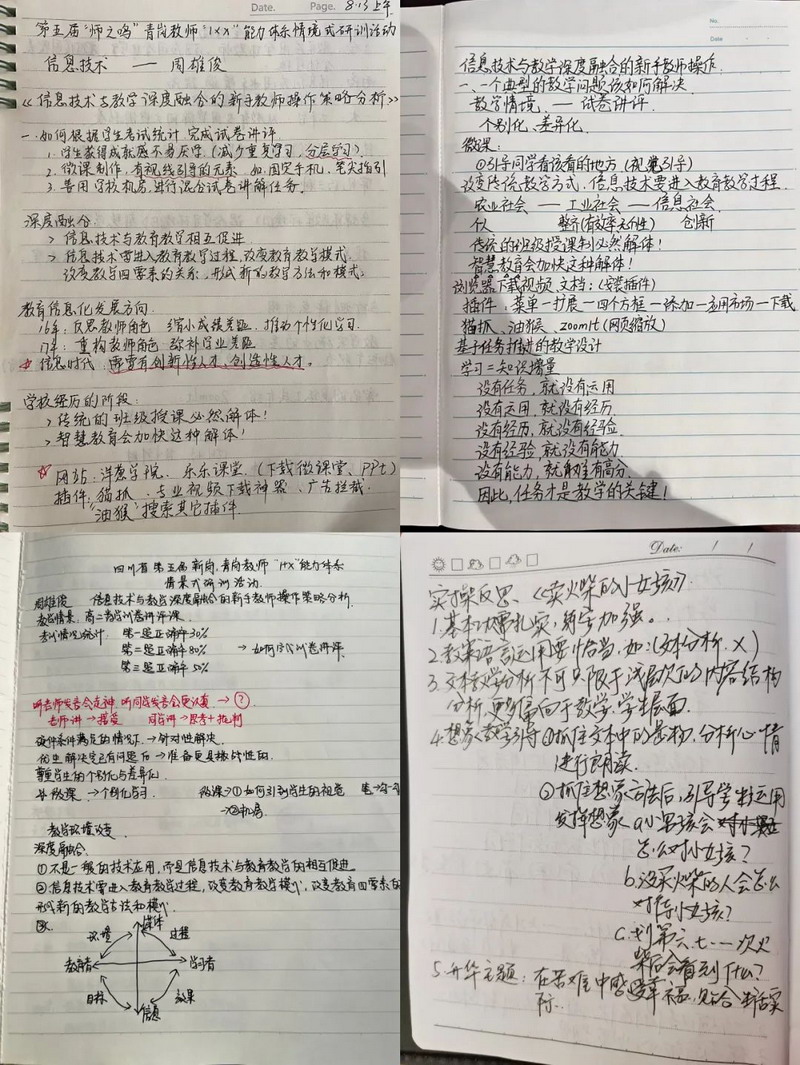 Date. Page. 8·13上午
第五届“师之鸣”青岗教师“1×X”能力体系情境式研训活动
信息技术 —— 周雄俊
《信息技术与教学深度融合的新手教师操作策略分析》
一.如何根据学生考试统计完成试卷讲评
1. 学生获得成就感不易厌学(减少重复学习,分层学习)
2. 微课制作,有视线引导的元素 如:固定手机,笔尖指引
3. 善用学校机房,进行混合试卷讲解任务.
深度融合:
> 信息技术与教育教学相互促进
> 信息技术要进入教育教学过程,改变教育教学模式.
改变教学四要素的关系,形成新的教学方法和模式.
教育信息化发展方向:
16年:反思教师角色 缩小成绩差距,推动个性化学习.
17年:重构教师角色 弥补学业差距
信息时代:需要有创新性人才,创造性人才。
学校经历的阶段:
> 传统的班级授课必然解体!
> 智慧教育会加快这种解体!
☆ 网站:洋葱学院、乐乐课堂.(下载微课堂、PPt)
插件:猫抓、专业视频下载神器、广告拦截.
“油猴”搜索其它插件.
No.
Date
信息技术与教学深度融合的新手教师操作.
一、一个典型的教学问题该如何解决.
教学情境 —— 试卷讲评.
个别化、差异化.
微课:
①引导同学看该看的地方(视觉引导)
改变传统教学方式,信息技术要进入教育教学过程.
农业社会 —— 工业社会 —— 信息社会
创新
传统的班级授课制必然解体!
智慧教育会加快这种解体!
浏览器下载视频、文档:(安装插件)
插件:菜单一扩展一四个方框一添加一应用市场一下载
猫抓、油猴、zoomIt(网页缩放)
基于任务推进的教学设计
学习=知识增量
没有任务,就没有运用
没有运用,就没有经历.
没有经历,就没有经验.
没有经验,就没有能力
没有能力,就难有高分.
因此,任务才是教学的关键!
四川省第五届新岗,青岗教师“1+X”能力体系
情景式研训活动.
周雄俊 信息技术与教学深度融合的新手教师操作策略分析.
教学情景,高二数学试卷讲评课.
考试情况统计: 第一题正确率30%
第二题正确率80% → 如何试卷讲评.
第三题正确率50%
听老师发言会走神,听同学发言会更认真 → ?
老师讲→接受 同学讲→思考+批判
硬件条件满足的情况下,→针对性解决.
学生解决完已有问题后→准备更具挑战性的.
尊重学生的个别化与差异化.
→个别化学习 微课→①如何引到学生的视觉
→②机房
教学环境改变.
深度融合:
①不是一般的技术应用,而是信息技术与教育教学的相互促进
②信息技术要进入教育教学过程,改变教育教学模式,改变教育四要素的
形成新的教学方法和模式.
媒体
环境 过程
教育者 学习者
目标 效果
信息
Date: / /
实操反思、《卖火柴的小女孩》:
1.基本功要扎实,练字加强。
2.教案语言运用要恰当,如:(文本分析.X)
3.文本教学分析不可只限于浅层次的内容结构
分析,更多偏向于教学、学生层面.
4.想象教学引导①抓住文本中的景物,分析心情
进行朗读.
②抓住想象方法后,引导学生运用
发挥想象 a.小男孩会
怎么对小女孩?
b.没买火柴的人会怎么
对待小女孩?
c.划第六、七……次火
柴后会看到什么?
5.升华主题:在苦难中感受幸福,结合生活实
际..